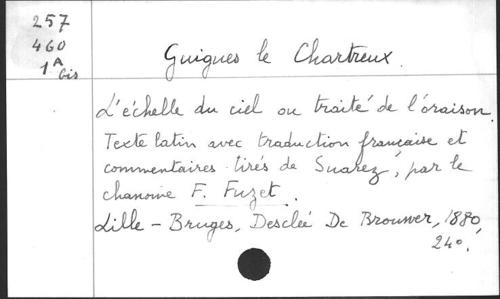 257
460
1A Cis
Guigues le Chartreux.
L'échelle du ciel ou traité de l'oraison.
Texte latin avec traduction française et
commentaires tirés de Suarez, par le
chanoine F. Fuzet.
Lille - Bruges, Desclée De Brouwer, 1880,
24o.